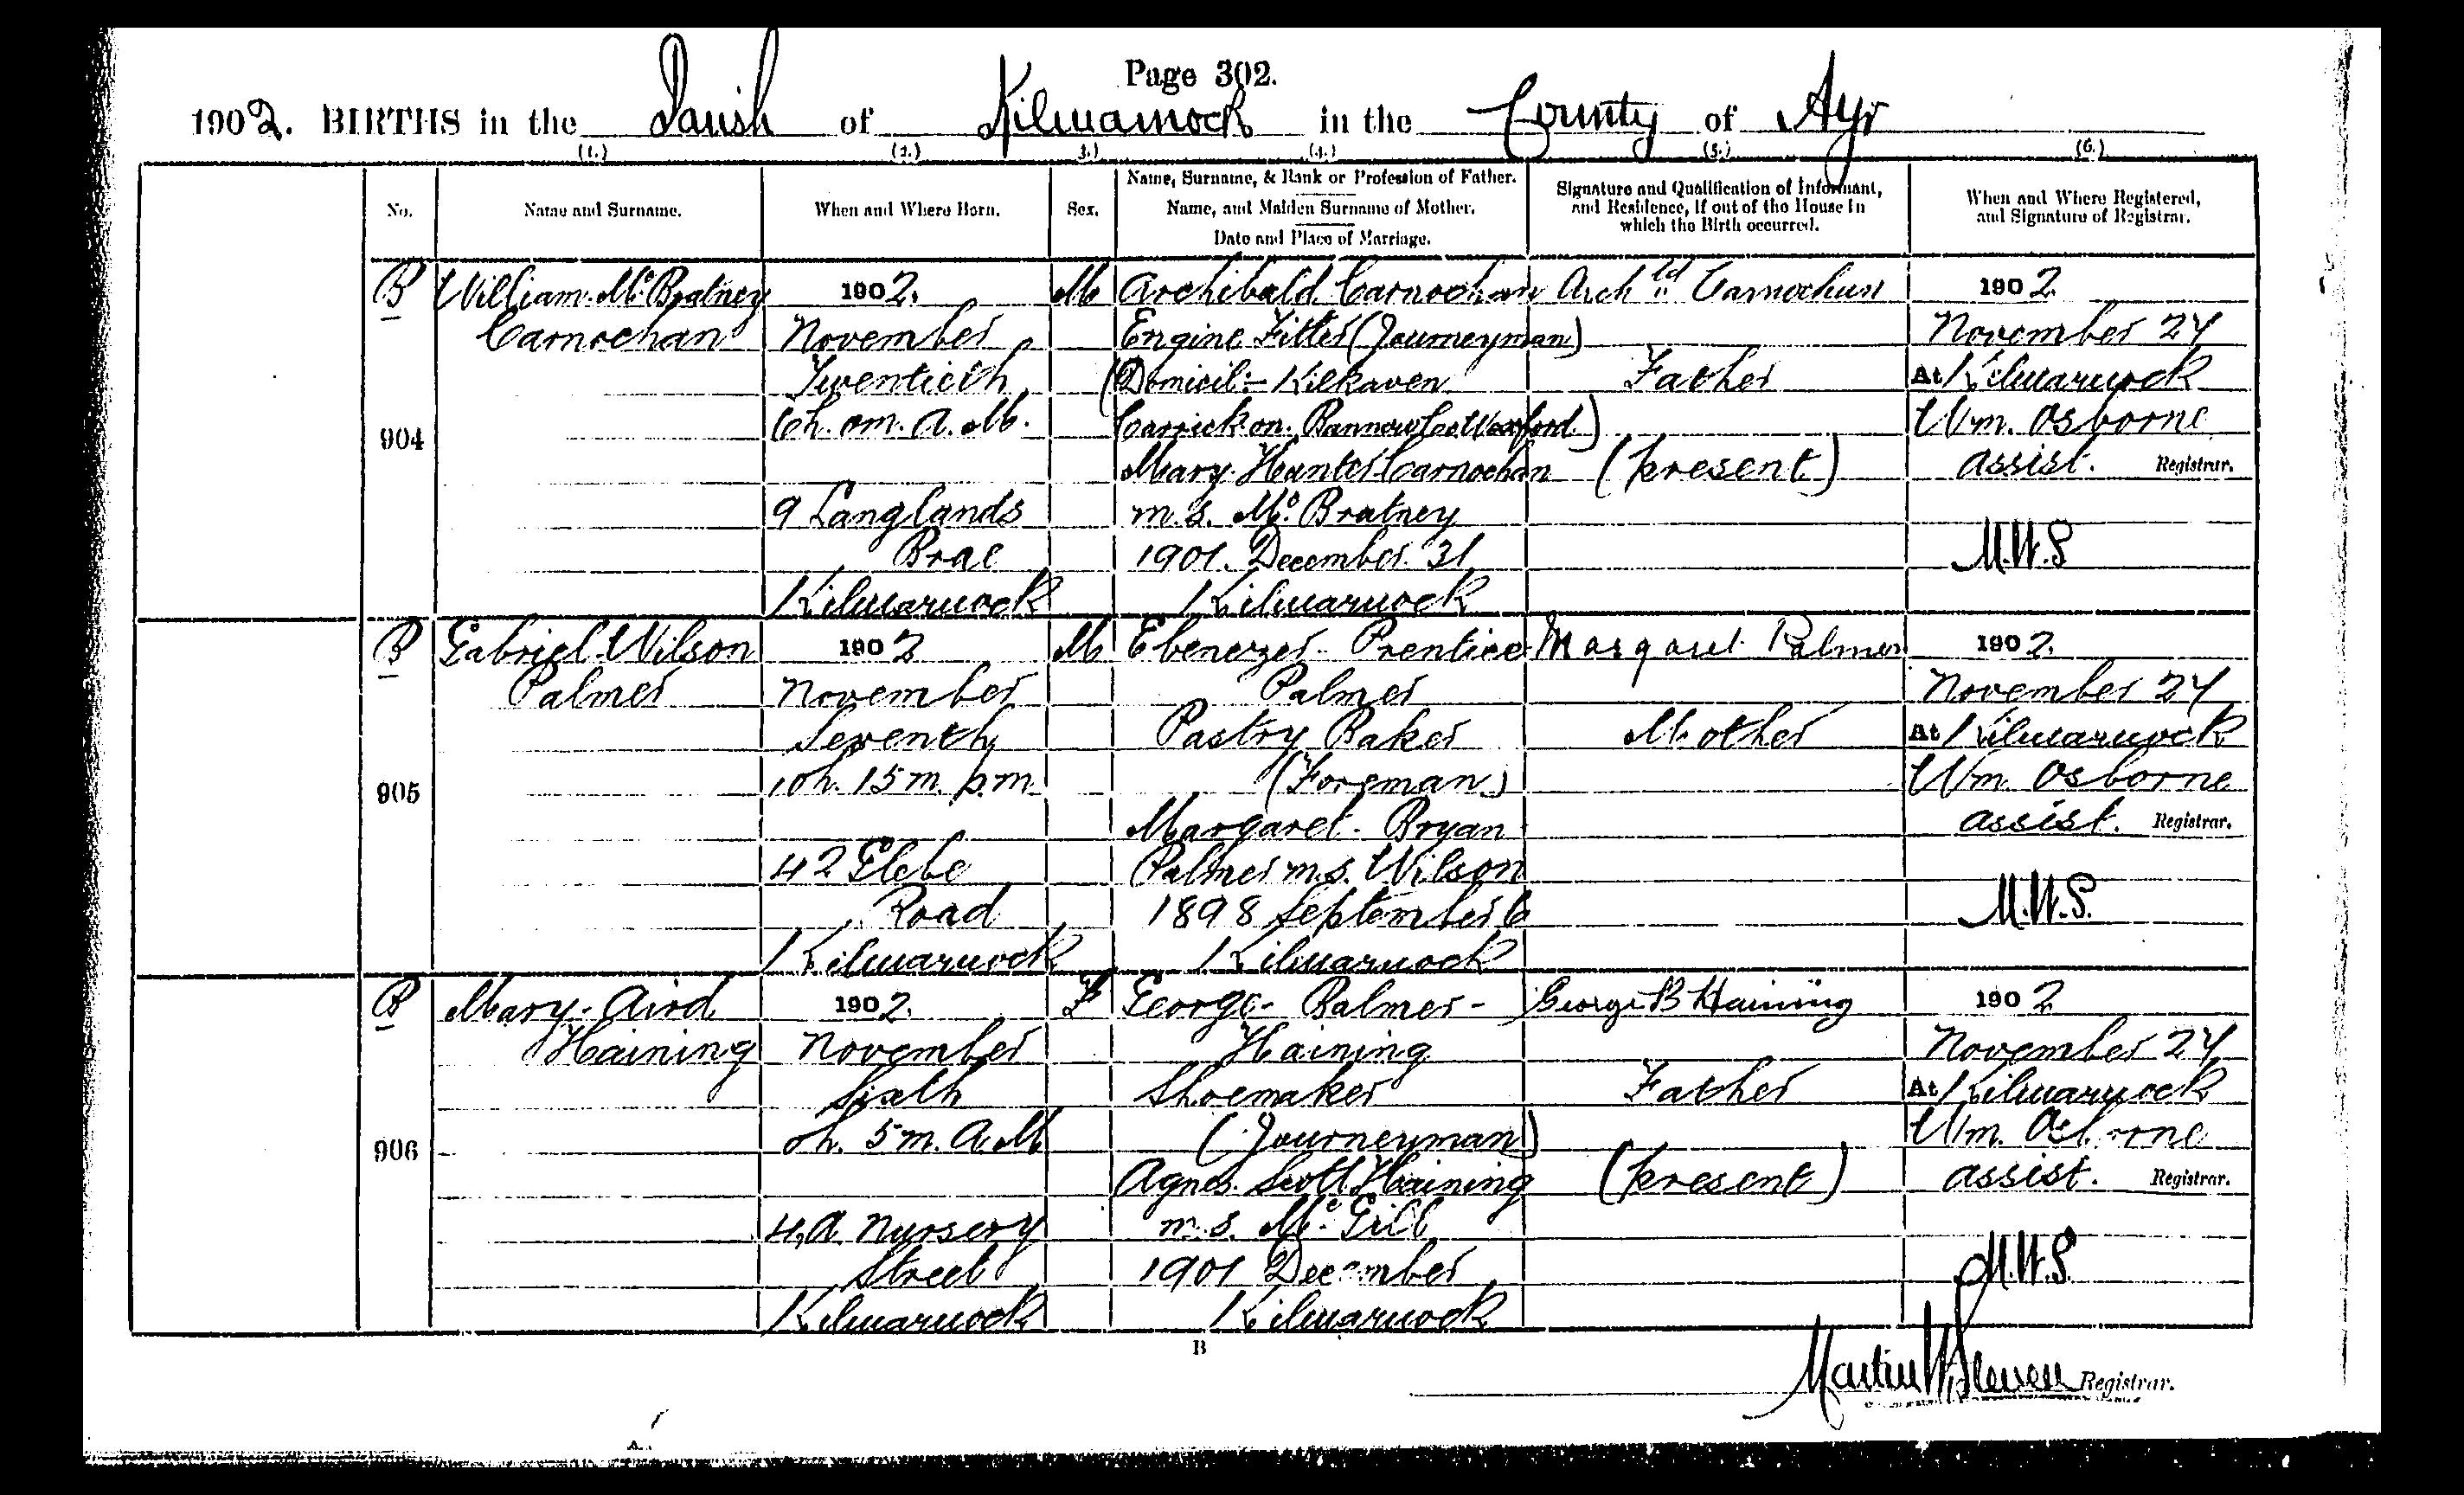 Page 302.
1902. BIRTHS in the Parish of Kilmarnock in the County of Ayr
(1.) (2.) 3.) (4.) (5.) (6.)
No.
Name and Surname.
When and Where Born.
Sex.
Name, Surname, & Rank or Profession of Father.
Name, and Maiden Surname of Mother.
Date and Place of Marriage.
Signature and Qualification of Informant,
and Residence, if out of the House in
which the Birth occurred.
When and Where Registered,
and Signature of Registrar.
904
B
William Mc Bratney
Carnochan
1902.
November
Twentieth
6h. 0m. A.M.
9 Langlands
Brae
Kilmarnock
M
Archibald Carnochan
Engine Fitter (Journeyman)
(Domicil:- Kilkaven
Carrick on Bannow Co Wexford.)
Mary Hunter Carnochan
m.s. Mc Bratney
1901. December 31
Kilmarnock
Archld Carnochan
Father
(Present)
1902.
November 24
At Kilmarnock
Wm. Osborne
assist. Registrar.
M.W.S
905
B
Gabriel Wilson
Palmer
1902
November
Seventh
10h. 15m. p.m.
42 Glebe
Road
Kilmarnock
M
Ebenezer Prentice
Palmer
Pastry Baker
(Foreman)
Margaret Bryan
Palmer m.s. Wilson
1898 September 6
Kilmarnock
Margaret Palmer
Mother
1902.
November 24
At Kilmarnock
Wm. Osborne
assist. Registrar.
M.W.S.
906
B
Mary Aird
Haining
1902.
November
Sixth
0h. 5m. A.M
4A Nursery
Street
Kilmarnock
F
George Palmer
Haining
Shoemaker
(Journeyman)
Agnes Scott Haining
m.s. Mc Gill
1901 December
Kilmarnock
George B Haining
Father
(Present)
1902
November 24
At Kilmarnock
Wm. Osborne
assist. Registrar.
M.W.S.
B
Martin W Steven Registrar.